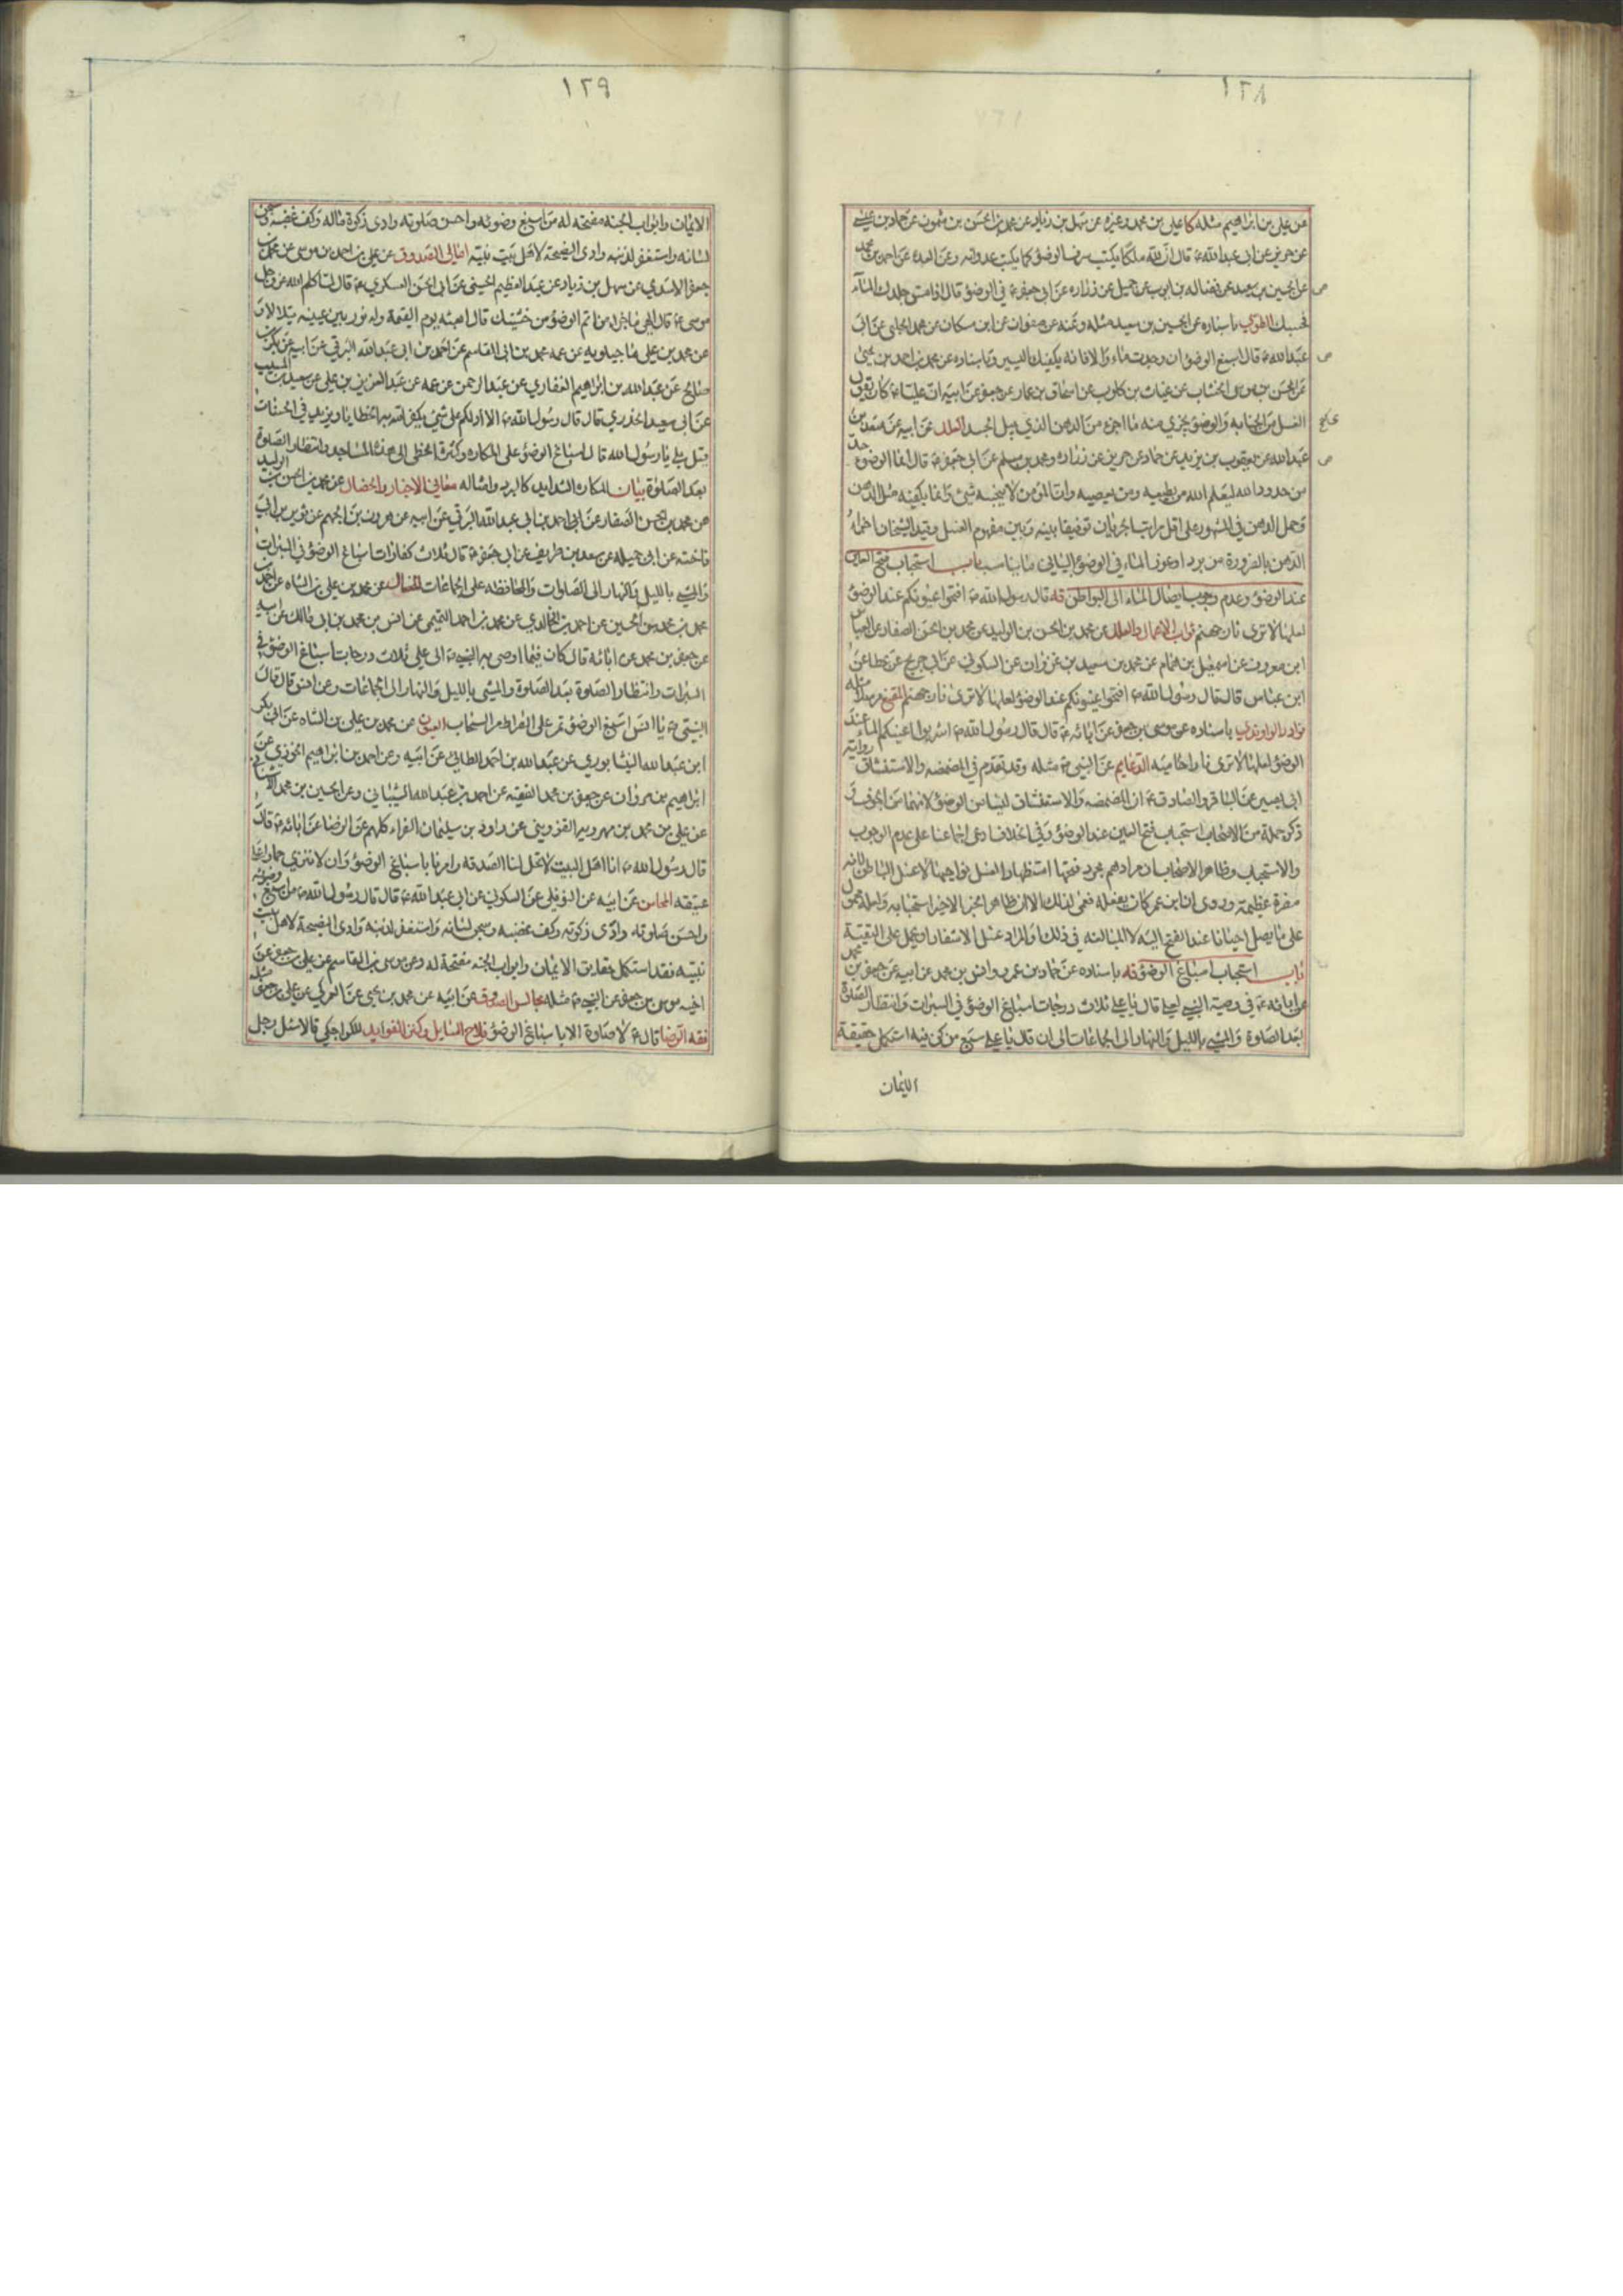 ١٢٨
عن علي بن ابراهيم مثله كا علي بن محمد وغيره عن سهل بن زياد عن محمد بن الحسن بن شمون عن حماد بن عيسى
عن حريز عن ابي عبد الله ع قال ان لله ملكا يكتب سرف الوضوء كما يكتب عدوانه وعن العده عن احمد بن محمد
عن الحسين بن سعيد عن فضاله بن ايوب عن جميل عن زراره عن ابي جعفر ع في الوضوء قال اذا مس جلدك الماء
فحسبك الطوسي باسناده عن الحسين بن سعيد مثله وعنه عن صفوان عن ابن مسكان عن محمد الحلبي عن ابي
عبد الله ع قال اسبغ الوضوء ان وجدت ماء والا فانه يكفيك اليسير وباسناده عن محمد بن احمد بن يحيى
عن الحسن بن موسى الخشاب عن غياث بن كلوب عن اسحاق بن عمار عن جعفر عن ابيه ان عليا ع كان يقول
الغسل من الجنابه والوضوء يجزي منه ما اجزء من الدهن الذي يبل الجسد العلل عن ابيه عن سعد بن
عبد الله عن يعقوب بن يزيد عن حماد عن حريز عن زراره ومحمد بن مسلم عن ابي جعفر ع قال انما الوضوء حد
من حدود الله ليعلم الله من يطيعه ومن يعصيه وان المؤمن لا ينجسه شئ وانما يكفيه مثل الدهن
وحمل الدهن في المشهور على اقل مراتب الجريان توفيقا بينه وبين مفهوم الغسل وقيد الشيخان اجزاء
الدهن بالضرورة من برد او عوز الماء في الوضوء الياتي ما يناسب باب استحباب فتح العين
عند الوضوء وعدم وجوب ايصال الماء الى البواطن قه قال رسول الله ص افتحوا عيونكم عند الوضوء
لعلها لا ترى نار جهنم ثواب الاعمال والعلل عن محمد بن الحسن بن الوليد عن محمد بن الحسن الصفار عن العباس
ابن معروف عن اسمعيل بن همام عن محمد بن سعيد بن غزوان عن السكوني عن ابن جريج عن عطا عن
ابن عباس قال قال رسول الله ص افتحوا عيونكم عند الوضوء لعلها لا ترى نار جهنم المقنع مرسلا مثله
نوادر الراوندي باسناده عن موسى بن جعفر عن ابائه ع قال قال رسول الله ص اشربوا اعينكم الماء عند
الوضوء لعلها لا ترى نارا حاميه الدعايم عن النبي ص مثله وقد تقدم في المضمضه والاستنشاق رواية
ابي بصير عن الباقر والصادق ع ان المضمضه والاستنشاق ليسا من الوضوء لانهما من الجوف و
ذكر جملة من الاصحاب استحباب فتح العين عند الوضوء وفي الخلاف ادعى اجماعنا على عدم الوجوب
والاستحباب وظاهر الاصحاب ان مرادهم مجرد فتحها استظهارا لغسل نواحيها لا غسل الباطن لانه
مضرة عظيمة وروى ان ابن عمر كان يفعله فعمي لذلك الا ان ظاهر الخبر الاخير استحبابه ولعله محمول
على ما يصل احيانا عند الفتح اليه لا المبالغه في ذلك او المراد غسل الاشفار او يحمل على التقية
باب استحباب اسباغ الوضوء قه باسناده عن حماد بن عمرو وانس بن محمد عن ابيه عن جعفر بن محمد
عن ابائه ع في وصية النبي لعلي قال يا علي ثلاث درجات اسباغ الوضوء في السبرات وانتظار الصلوة
بعد الصلوة والمشي بالليل والنهار الى الجماعات الى ان قال يا علي سبع من كن فيه استكمل حقيقة
الايمان
١٢٩
الايمان وابواب الجنه مفتحه له من اسبغ وضوئه واحسن صلوته وادى زكوة ماله وكف غضبه وسجن
لسانه واستغفر لذنبه وادى النصيحة لاهل بيت نبيه امالي الصدوق عن علي بن احمد بن موسى عن محمد بن
جعفر الاسدي عن سهل بن زياد عن عبد العظيم الحسني عن ابي الحسن العسكري ع قال لما كلم الله عز وجل
موسى ع قال الهي ما جزاء من اتم الوضوء من خشيتك قال ابعثه يوم القيمة وله نور بين عينيه يتلالا و
عن محمد بن علي ماجيلويه عن عمه محمد بن ابي القاسم عن احمد بن ابي عبد الله البرقي عن ابيه عن بكر بن
صالح عن عبد الله بن ابراهيم الغفاري عن عبد الرحمن عن عمه عن عبد العزيز بن علي عن سعيد بن المسيب
عن ابي سعيد الخدري قال قال رسول الله ص الا ادلكم على شئ يكفر الله به الخطايا ويزيد في الحسنات
قيل بلى يا رسول الله قال اسباغ الوضوء على المكاره وكثرة الخطى الى هذه المساجد وانتظار الصلوة
بعد الصلوة بيان المكاره الشدايد كالبرد وامثاله معاني الاخبار والخصال عن محمد بن الحسن بن الوليد
عن محمد بن الحسن الصفار عن احمد بن ابي عبد الله البرقي عن ابيه عن هرون بن الجهم عن ثوير بن ابي
فاخته عن ابي جميله عن سعد بن طريف عن ابي جعفر ع قال ثلاث كفارات اسباغ الوضوء في السبرات
والمشي بالليل والنهار الى الصلوات والمحافظه على الجماعات الخصال عن محمد بن علي بن الشاه عن احمد بن
محمد بن الحسين عن احمد بن خالد الخالدي عن محمد بن احمد التميمي عن انس بن محمد بن ابي مالك عن ابيه
عن جعفر بن محمد عن ابائه قال كان فيما اوصى به النبي ص الى علي ثلاث درجات اسباغ الوضوء في
السبرات وانتظار الصلوة بعد الصلوة والمشي بالليل والنهار الى الجماعات وعن انس قال قال
النبي ص يا انس اسبغ الوضوء تمر على الصراط مر السحاب العيون عن محمد بن علي بن الشاه عن ابي بكر
ابن عبد الله النيشابوري عن عبد الله بن احمد الطائي عن ابيه وعن احمد بن ابراهيم الخوزي عن
ابراهيم بن مروان عن جعفر بن محمد الفقيه عن احمد بن عبد الله الشيباني وعن الحسين بن محمد الاشناني
عن علي بن محمد بن مهرويه القزويني عن داود بن سليمان الفراء كلهم عن الرضا عن ابائه ع قال
قال رسول الله ص انا اهل البيت لا تحل لنا الصدقه وامرنا باسباغ الوضوء وان لا ننزي حمارا على
عتيقه المحاسن عن ابيه عن النوفلي عن السكوني عن ابي عبد الله ع قال قال رسول الله ص من اسبغ وضوئه
واحسن صلوته وادى زكوته وكف غضبه وسجن لسانه واستغفر لذنبه وادى النصيحة لاهل بيت
نبيه فقد استكمل حقايق الايمان وابواب الجنه مفتحة له وعن موسى بن القاسم عن علي بن جعفر عن
اخيه موسى بن جعفر عن النبي ص مثله مجالس الصدوق عن ابيه عن محمد بن يحيى عن العمركي عن علي بن جعفر مثله
فقه الرضا قال ع لا صلوة الا باسباغ الوضوء فلاح السايل وكنز الفوايد للكراجكي قالا سئل رجل